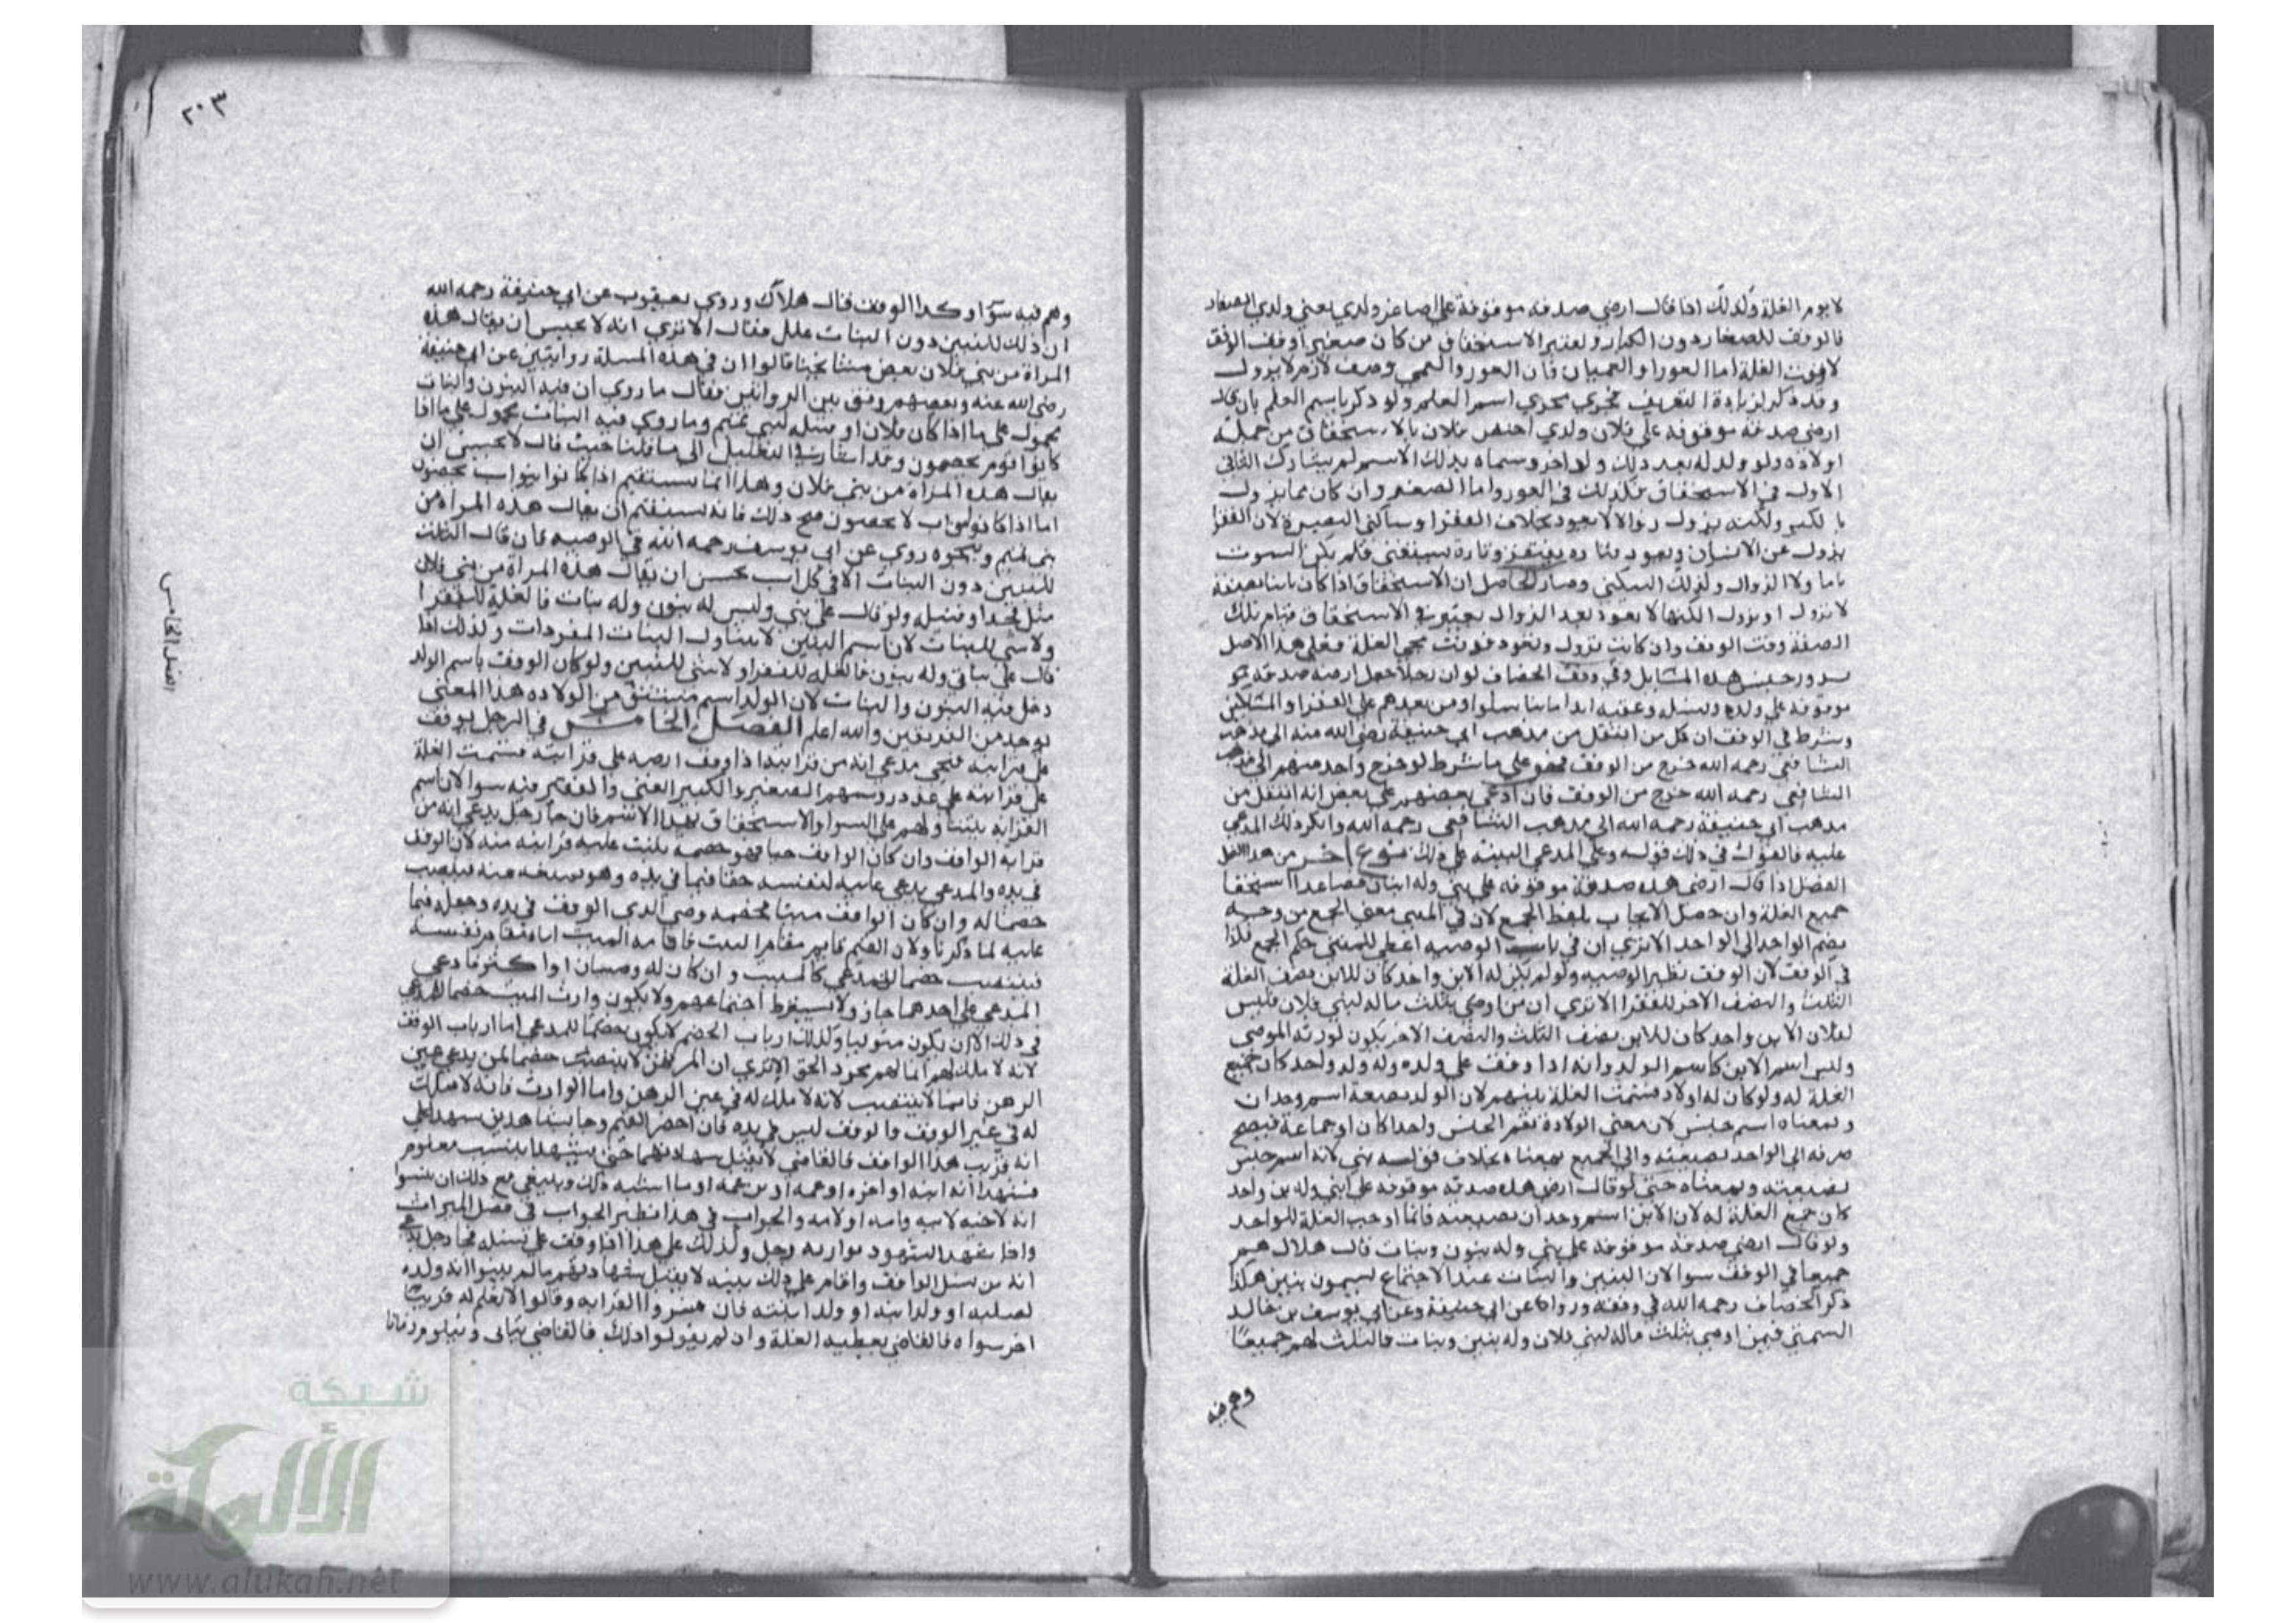 لا يوم الغلة وكذلك اذا قال ارضي صدقه موقوفة على اصاغر ولدي يعني ولدي الصغار
فالوقف للصغار دون الكبار ويعتبر الاستحقاق من كان صغيرا وقف الوقف
لا وقت الغلة اما العورا والعميان فان العور والعمي وصف لازم لا يزول
وقد ذكر لزيادة التعريف فجري مجري اسم العلم ولو ذكر باسم العلم بان قال
ارضي صدقه موقوفه علي فلان ولدي اختص فلان بالاستحقاق من جملة
اولاده ولو ولد له بعد ذلك ولد اخر وسماه بذلك الاسم لم يشارك الثاني
الاول في الاستحقاق فكذلك في العور واما الصغر وان كان مما يزول
با لكبر ولكنه يزول زوالا لا يعود بخلاف الفقرا وساكني البصرة لان الفقر
يزول عن الانسان ويعود فتاره يفتقر وتارة يستغني فلم يكن الثبوت
تاما ولا الزوال وكذلك السكني وصار الحاصل ان الاستحقاق اذا كان ثابتا بصفة
لا تزول او تزول لكنها لا تعود بعد الزوال يعتبر في الاستحقاق قيام تلك
الصفة وقت الوقف وان كانت تزول وتعود فوقت مجي الغلة فعلي هذا الاصل
يدور جنس هذه المسايل وفي وقف الخصاف لو ان رجلا جعل ارضه صدقه
موقوفه علي ولده ونسله وعقبه ابدا ما تناسلوا ومن بعدهم علي الفقرا والمساكين
وشرط في الوقف ان كل من انتقل من مذهب ابي حنيفة رضي الله عنه الي مذهب
الشافعي رحمه الله خرج من الوقف فهو علي ما شرط لو خرج واحد منهم الي مذهب
الشافعي رحمه الله خرج من الوقف فان ادعي بعضهم علي بعض انه انتقل من
مذهب ابي حنيفة رحمه الله الي مذهب الشافعي رحمه الله وانكر ذلك المدعي
عليه فالقول في ذلك قوله وعلي المدعي البينة علي ذلك نوع اخر من هذا
الفصل اذا قال ارضي هذه صدقة موقوفه علي بني وله ابنان فصاعدا استحقا
جميع الغلة وان حصل الايجاب بلفظ الجمع لان في المثنى معنى الجمع من وجه
بضم الواحد الى الواحد الا تري ان في باب الوصيه اعطي للمثني حكم الجمع فكذا
في الوقف لان الوقف نظير الوصيه ولو لم يكن له الا بن واحد كان للابن نصف الغلة
والنصف الاخر للفقرا الا تري ان من اوصي بثلث ماله لبني فلان وليس
لفلان الا بن واحد كان للابن نصف الثلث والنصف الاخر يكون لورثة الموصي
وليس اسم الابن كاسم الولد وانه اذا وقف علي ولده وله ولد واحد كان جميع
الغلة له ولو كان له اولاد قسمت الغلة بينهم لان الولد بصيغة اسم وحدان
وبمعناه اسم جنس لان معنى الولادة تعم الجنس واحدا كان او جماعة فيصح
صرفه الي الواحد بصيغته والي الجميع بمعناه بخلاف قوله بني لانه اسم جنس
بصيغته وبمعناه حتى لو قال ارضي هذه صدقه موقوفه علي ابني وله بن واحد
كان جميع الغلة له لان الابن اسم وحدان بصيغته فانما اوجب الغلة للواحد
ولو قال ارضي صدقة موقوفة علي بني وله بنون وبنات قال هلال هم
جميعا في الوقف سوا لان البنين والبنات عند الاجتماع يسمون بنين هكذا
ذكر الخصاف رحمه الله في وقفه وروا عن ابي حنيفة وعن ابي يوسف بن خالد
السمتي فيمن اوصي بثلث ماله لبني فلان وله بنين وبنات فالثلث لهم جميعا
وهم فيه
٢٠٣
وهم فيه سوا وكذا الوقف قال هلال وروي يعقوب عن ابي حنيفة رحمه الله
ان ذلك للبنين دون البنات علل فقال الا تري انه لا يحسن ان يقال هذه
المراة من بني فلان بعض مشايخنا قالوا ان في هذه المسلة روايتين عن ابي حنيفة
رضي الله عنه وبعضهم وفق بين الروايتين فقال ما روي ان فيه البنون والبنات
محمول علي ما اذا كان فلان او نسله لبني تميم وما روي فيه البنات محمول علي ما اذا
كانوا قوم يحصون وقد اشار في التعليل الي ما قلنا حيث قال لا يحسن ان
يقال هذه المراة من بني فلان وهذا انما يستقيم اذا كانوا بنو اب يحصون
اما اذا كانو بنو اب لا يحصون فمع ذلك فانه يستقيم ان يقال هذه المراة من
بني تميم وبنحوه روي عن ابي يوسف رحمه الله في الوصيه فان قال الثلث
للبنين دون البنات الا في كل اب يحسن ان يقال هذه المراة من بني فلان
مثل فخذ او نسله ولو قال علي بني وليس له بنون وله بنات فالغلة للفقرا
ولا شي للبنات لان اسم البنين لا يتناول البنات المفردات وكذلك اذا
قال علي بناتي وله بنون فالغلة للفقرا ولا شي للبنين ولو كان الوقف باسم الولد
دخل فيه البنون والبنات لان الولد اسم مشتق من الولاده هذا المعنى
يوجد من الفريقين والله اعلم الفصل الخامس في الرجل يوقف
علي قرابته فيجي مدعي انه من قرابته اذا وقف ارضه علي قرابته قسمت الغلة
علي قرابته علي عدد روسهم الصغير والكبير الغني والفقير فيه سوا لان اسم
القرابة يتناولهم علي السوا والاستحقاق بهذا الاسم فان جا رجل يدعي انه من
قرابة الواقف وان كان الواقف حيا فهو خصمه يثبت عليه قرابته منه لان الوقف
في يده والمدعي يدعي عليه لنفسه حقا فيما في يده وهو يمنعه منه فينصب
خصما له وان كان الواقف ميتا فخصمه وصي الذي الوقف في يده وجعل فيما
عليه لما ذكرنا ولان القيم قايم مقام الميت فاقامه الميت اياه مقام نفسه
فينتصب خصما للمدعي كالميت وان كان له وصيان او اكثر فادعي
المدعي علي احدهما جاز ولا يشترط اجتماعهم ولا يكون وارث الميت خصما للمدعي
في ذلك الا ان يكون متوليا وكذلك ارباب الخصم لا يكون خصما للمدعي اما ارباب الوقف
لانه لا ملك لهم انما لهم مجرد الحق الا تري ان المرتهن لا ينتصب خصما لمن يدعي عين
الرهن فانما لا ينتصب لانه لا ملك له في عين الرهن واما الوارث فانه لا ملك
له في عين الوقف والوقف ليس في يده فان احضر القيم وجا بشاهدين شهدا علي
انه قريب هذا الواقف فالقاضي لا يقبل شهادتهما حتى يشهدا بنسب معلوم
فيشهدا انه ابنه او اخوه او عمه او بن عمه او ما اشبه ذلك وينبغي مع ذلك ان يثبتوا
انه لاخيه لابيه وامه او لامه والجواب في هذا نظير الجواب في فصل الميراث
واذا شهد الشهود بوارثه رجل وكذلك علي هذا اذا وقف علي نسله فجا رجل يدعي
انه من نسل الواقف واقام علي ذلك بينه لا يقبل شهادتهم ما لم يبينوا انه ولده
لصلبه او ولد ابنه او ولد ابنته فان فسروا القرابه وقالوا لا نعلم له قريبا
اخر سواه فالقاضي يعطيه الغلة وان لم يقولوا ذلك فالقاضي يتاني ويتلوم زمانا
الفصل الخامس
شبكة
الألوكة
www.alukah.net